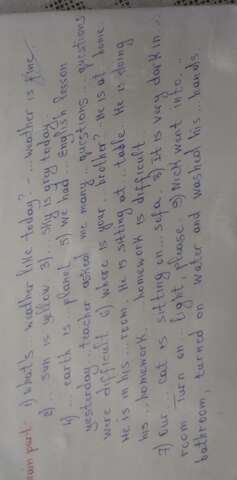 ... part. 1) What's ... weather like today? - ... weather is fine
2) ... sun is yellow 3) ... sky is grey today
4) ... earth is planet 5) We had ... English lesson
yesterday. teacher asked me many ... questions ... questions
were difficult 6) Where is your ... brother? He is at home.
He is in his ... room. He is sitting at ... table. He is doing
his ... homework ... homework is difficult
7) Our ... cat is sitting on ... sofa 8) It is very dark in ...
room. Turn on light, please 9) Nick went into ...
bathroom, turned on water and washed his ... hands